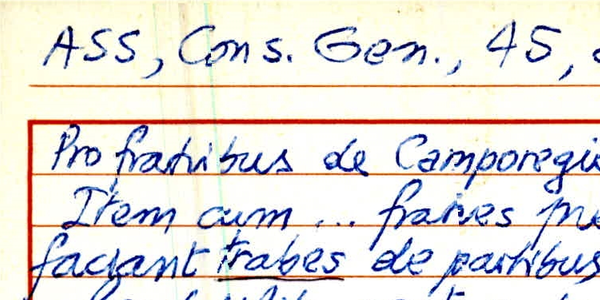 ASS, Cons. Gen., 45,
Pro fratribus de Camporegi
Item cum ... fratres pre
faciant trabes de partibus